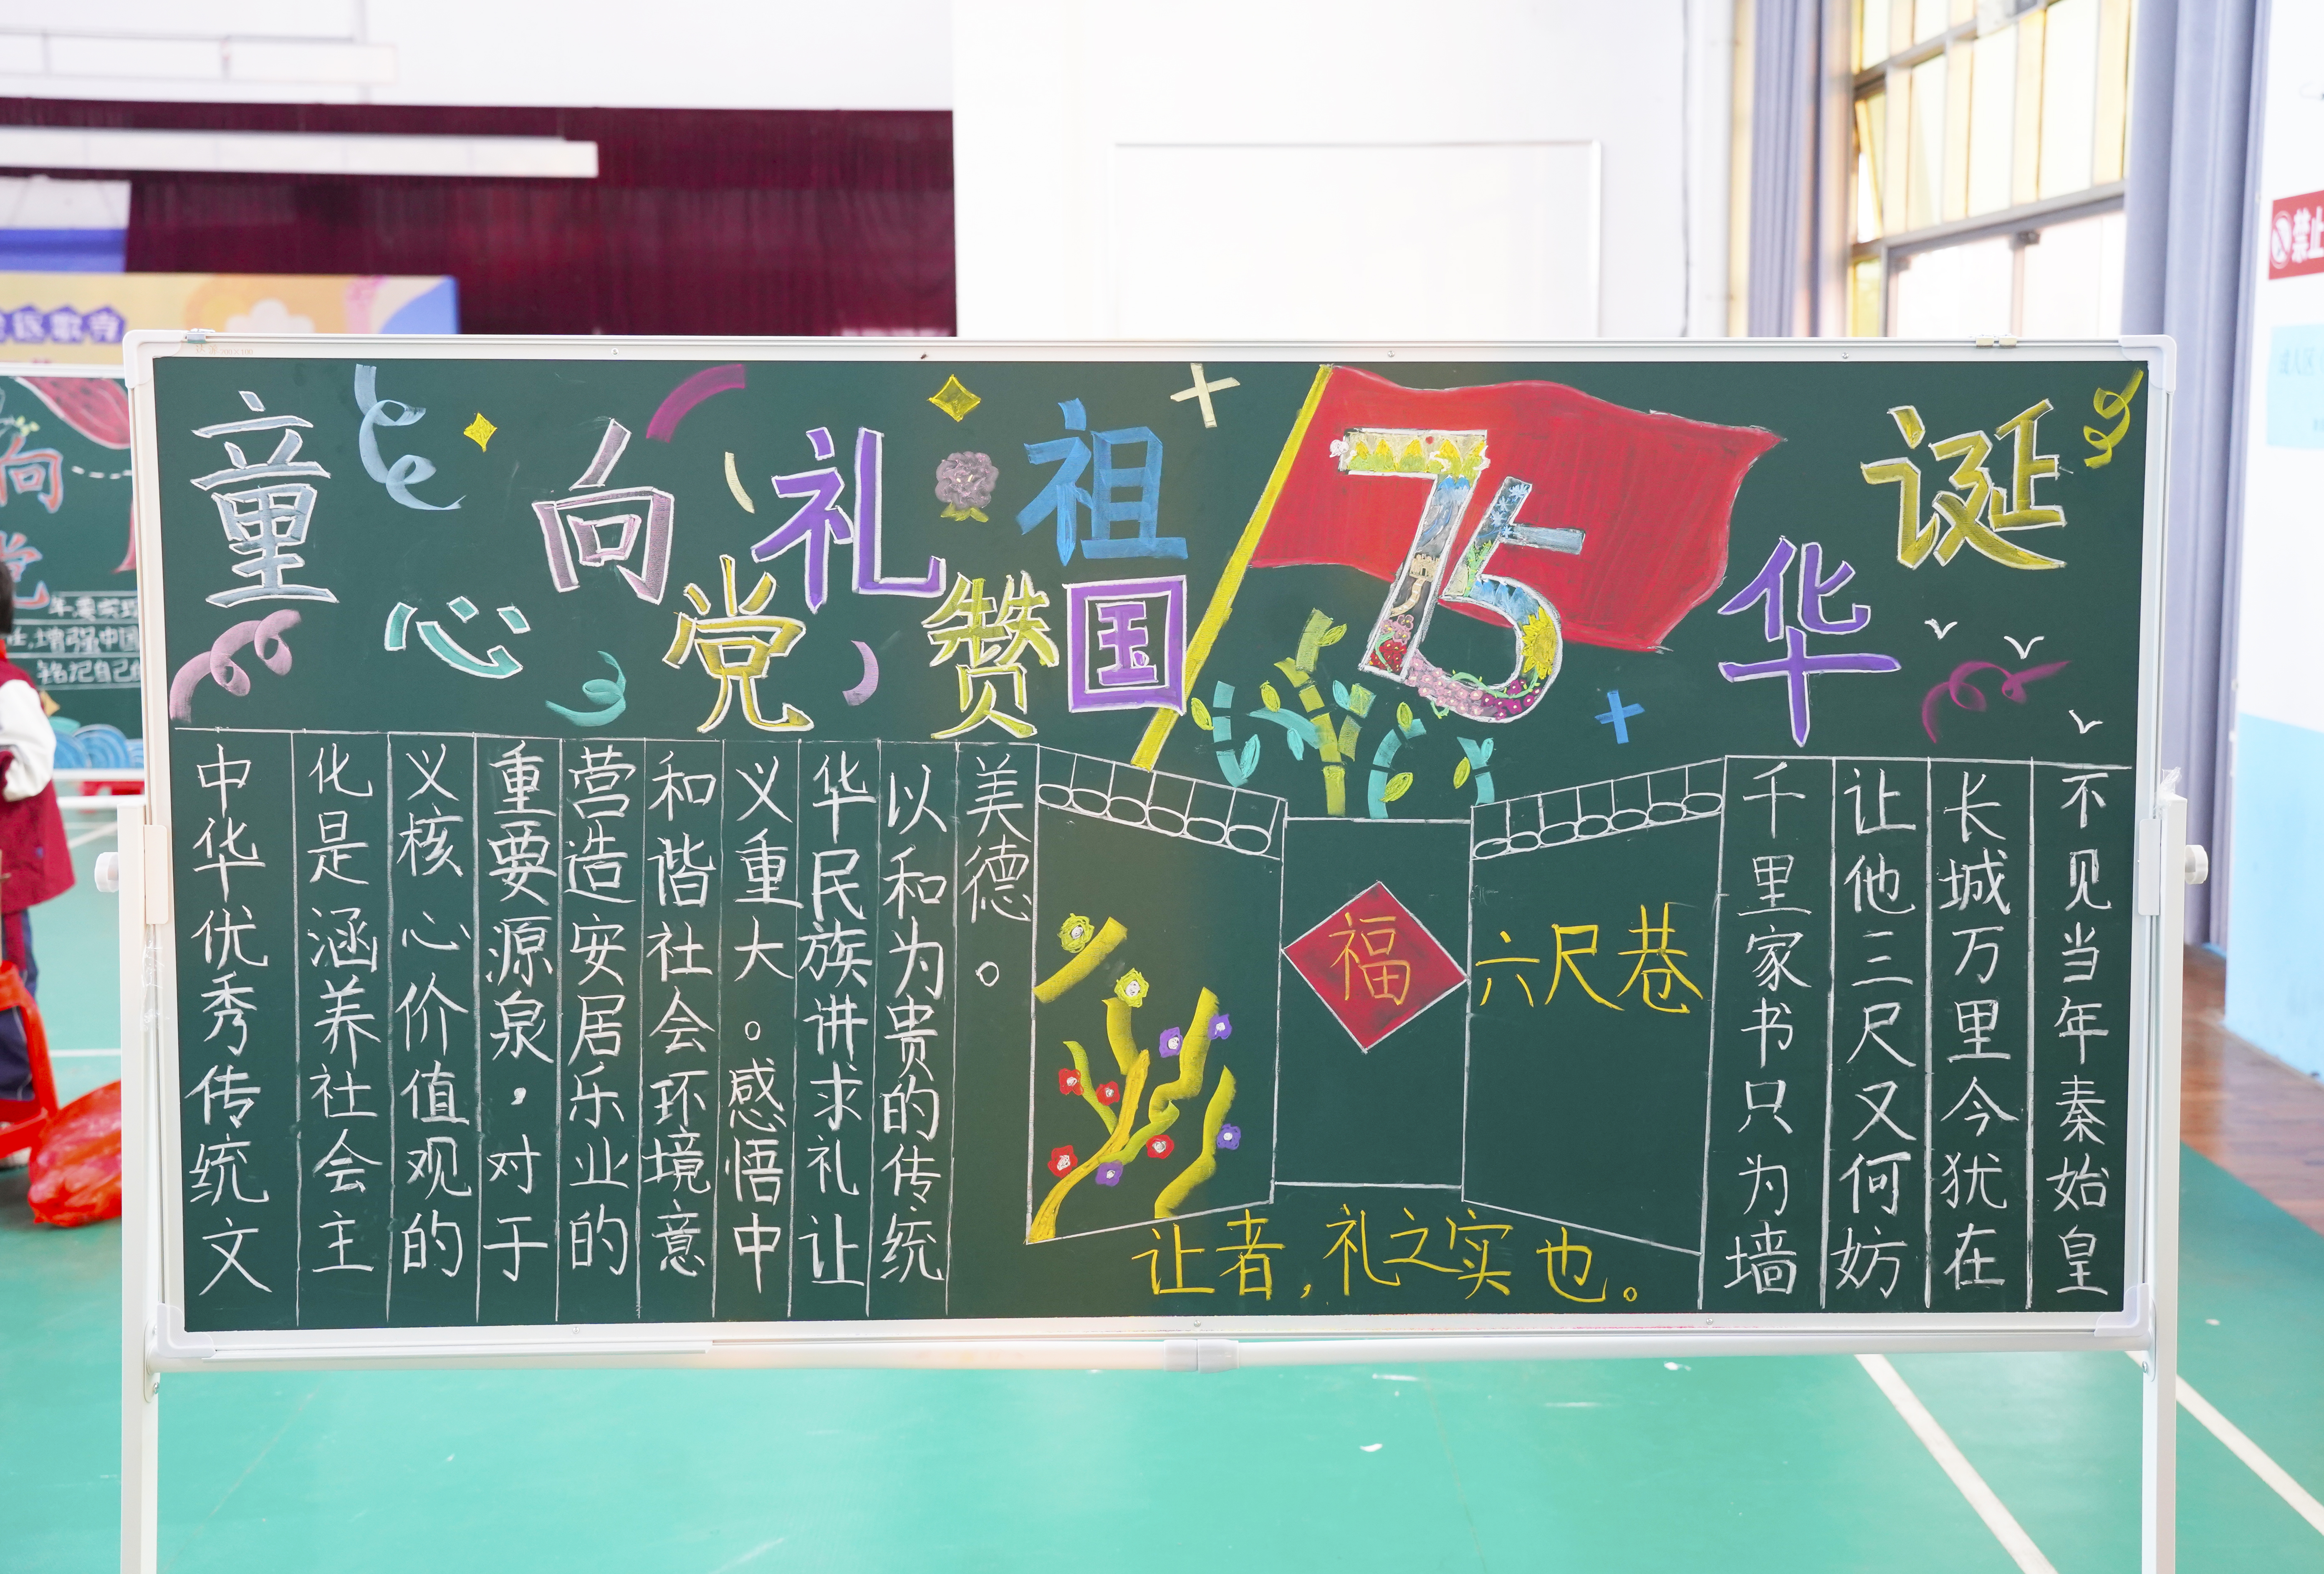 童心向党礼赞祖国75华诞
中华优秀传统文
化是涵养社会主
义核心价值观的
重要源泉，对于
营造安居乐业的
和谐社会环境意
义重大。感悟中
华民族讲求礼让
以和为贵的传统
美德。
福
六尺巷
让者，礼之实也。
千里家书只为墙
让他三尺又何妨
长城万里今犹在
不见当年秦始皇
禁止
向
党
增强中国
铭记自己